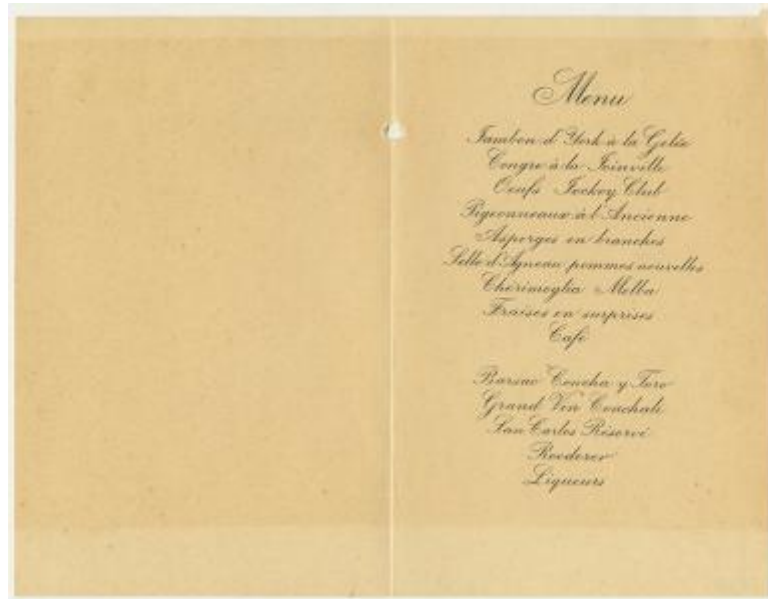 Menu
Jambon d'York à la Gelée
Congre à la Joinville
Oeufs Jockey Club
Pigeonneaux à l'Ancienne
Asperges en branches
Selle d'Agneau pommes nouvelles
Cherimoglia Melba
Fraises en surprises
Café
Barsac Concha y Toro
Grand Vin Conchali
San Carlos Réservé
Roederer
Liqueurs